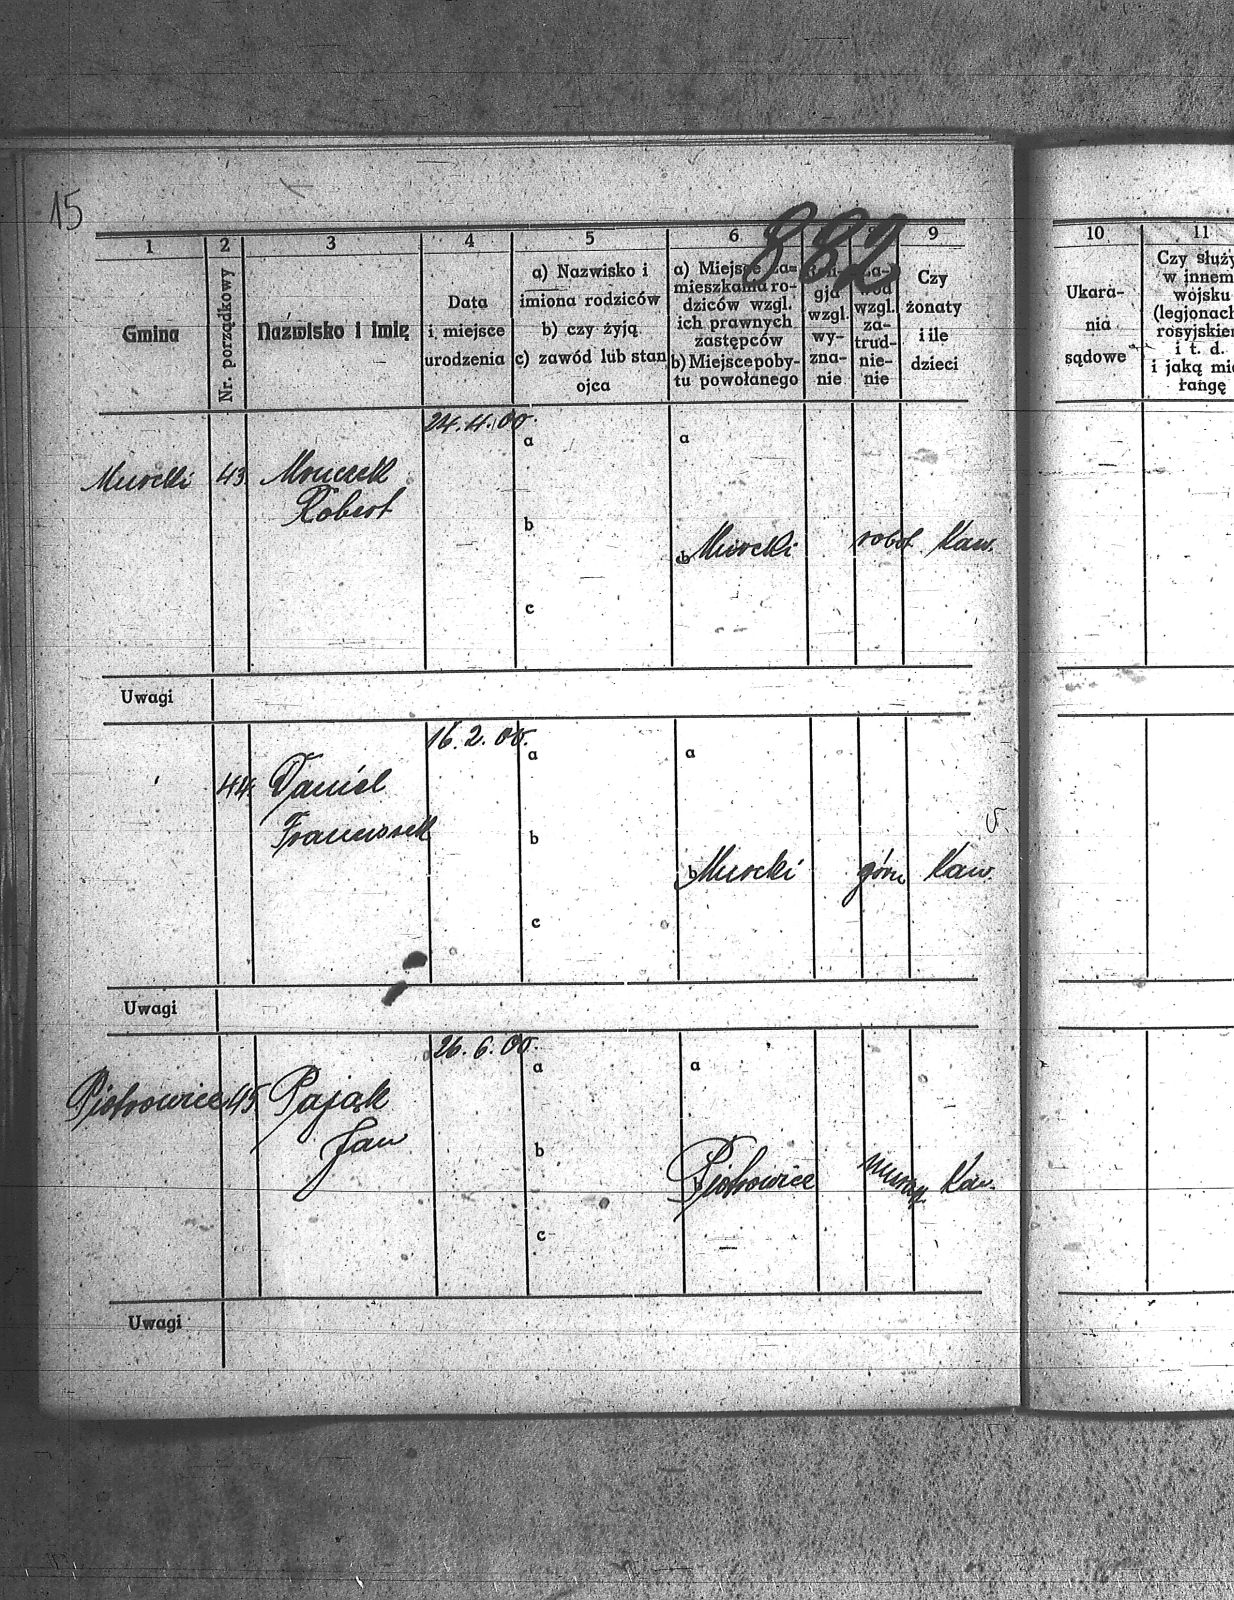 15
882
1 2 3 4 5 6 9 10 11
Gmina
Nr. porządkowy
Nazwisko i imię
Data
i miejsce
urodzenia
a) Nazwisko i
imiona rodziców
b) czy żyją
c) zawód lub stan
ojca
a) Miejsce za=
mieszkania ro-
dziców wzgl.
ich prawnych
zastępców
b) Miejsce poby-
tu powołanego
gja
wzgl.
wy-
zna-
nie
wzgl.
za-
trud-
nie-
nie
Czy
żonaty
i ile
dzieci
Ukara-
nia
sądowe
Czy służy
w innem
wojsku
(legjonach
rosyjskiem
i t. d.
i jaką mia
rangę
24.4.00.
a a
Murcki 43. Mruczek
Robert
b
b Murcki robot. Kaw.
c
Uwagi
16.2.00.
a a
44. Daniel
Franciszek
b
b Murcki górn Kaw.
c
Uwagi
26.6.00.
a a
Piotrowice 45 Pająk
Jan
b
b Piotrowice Kaw.
c
Uwagi